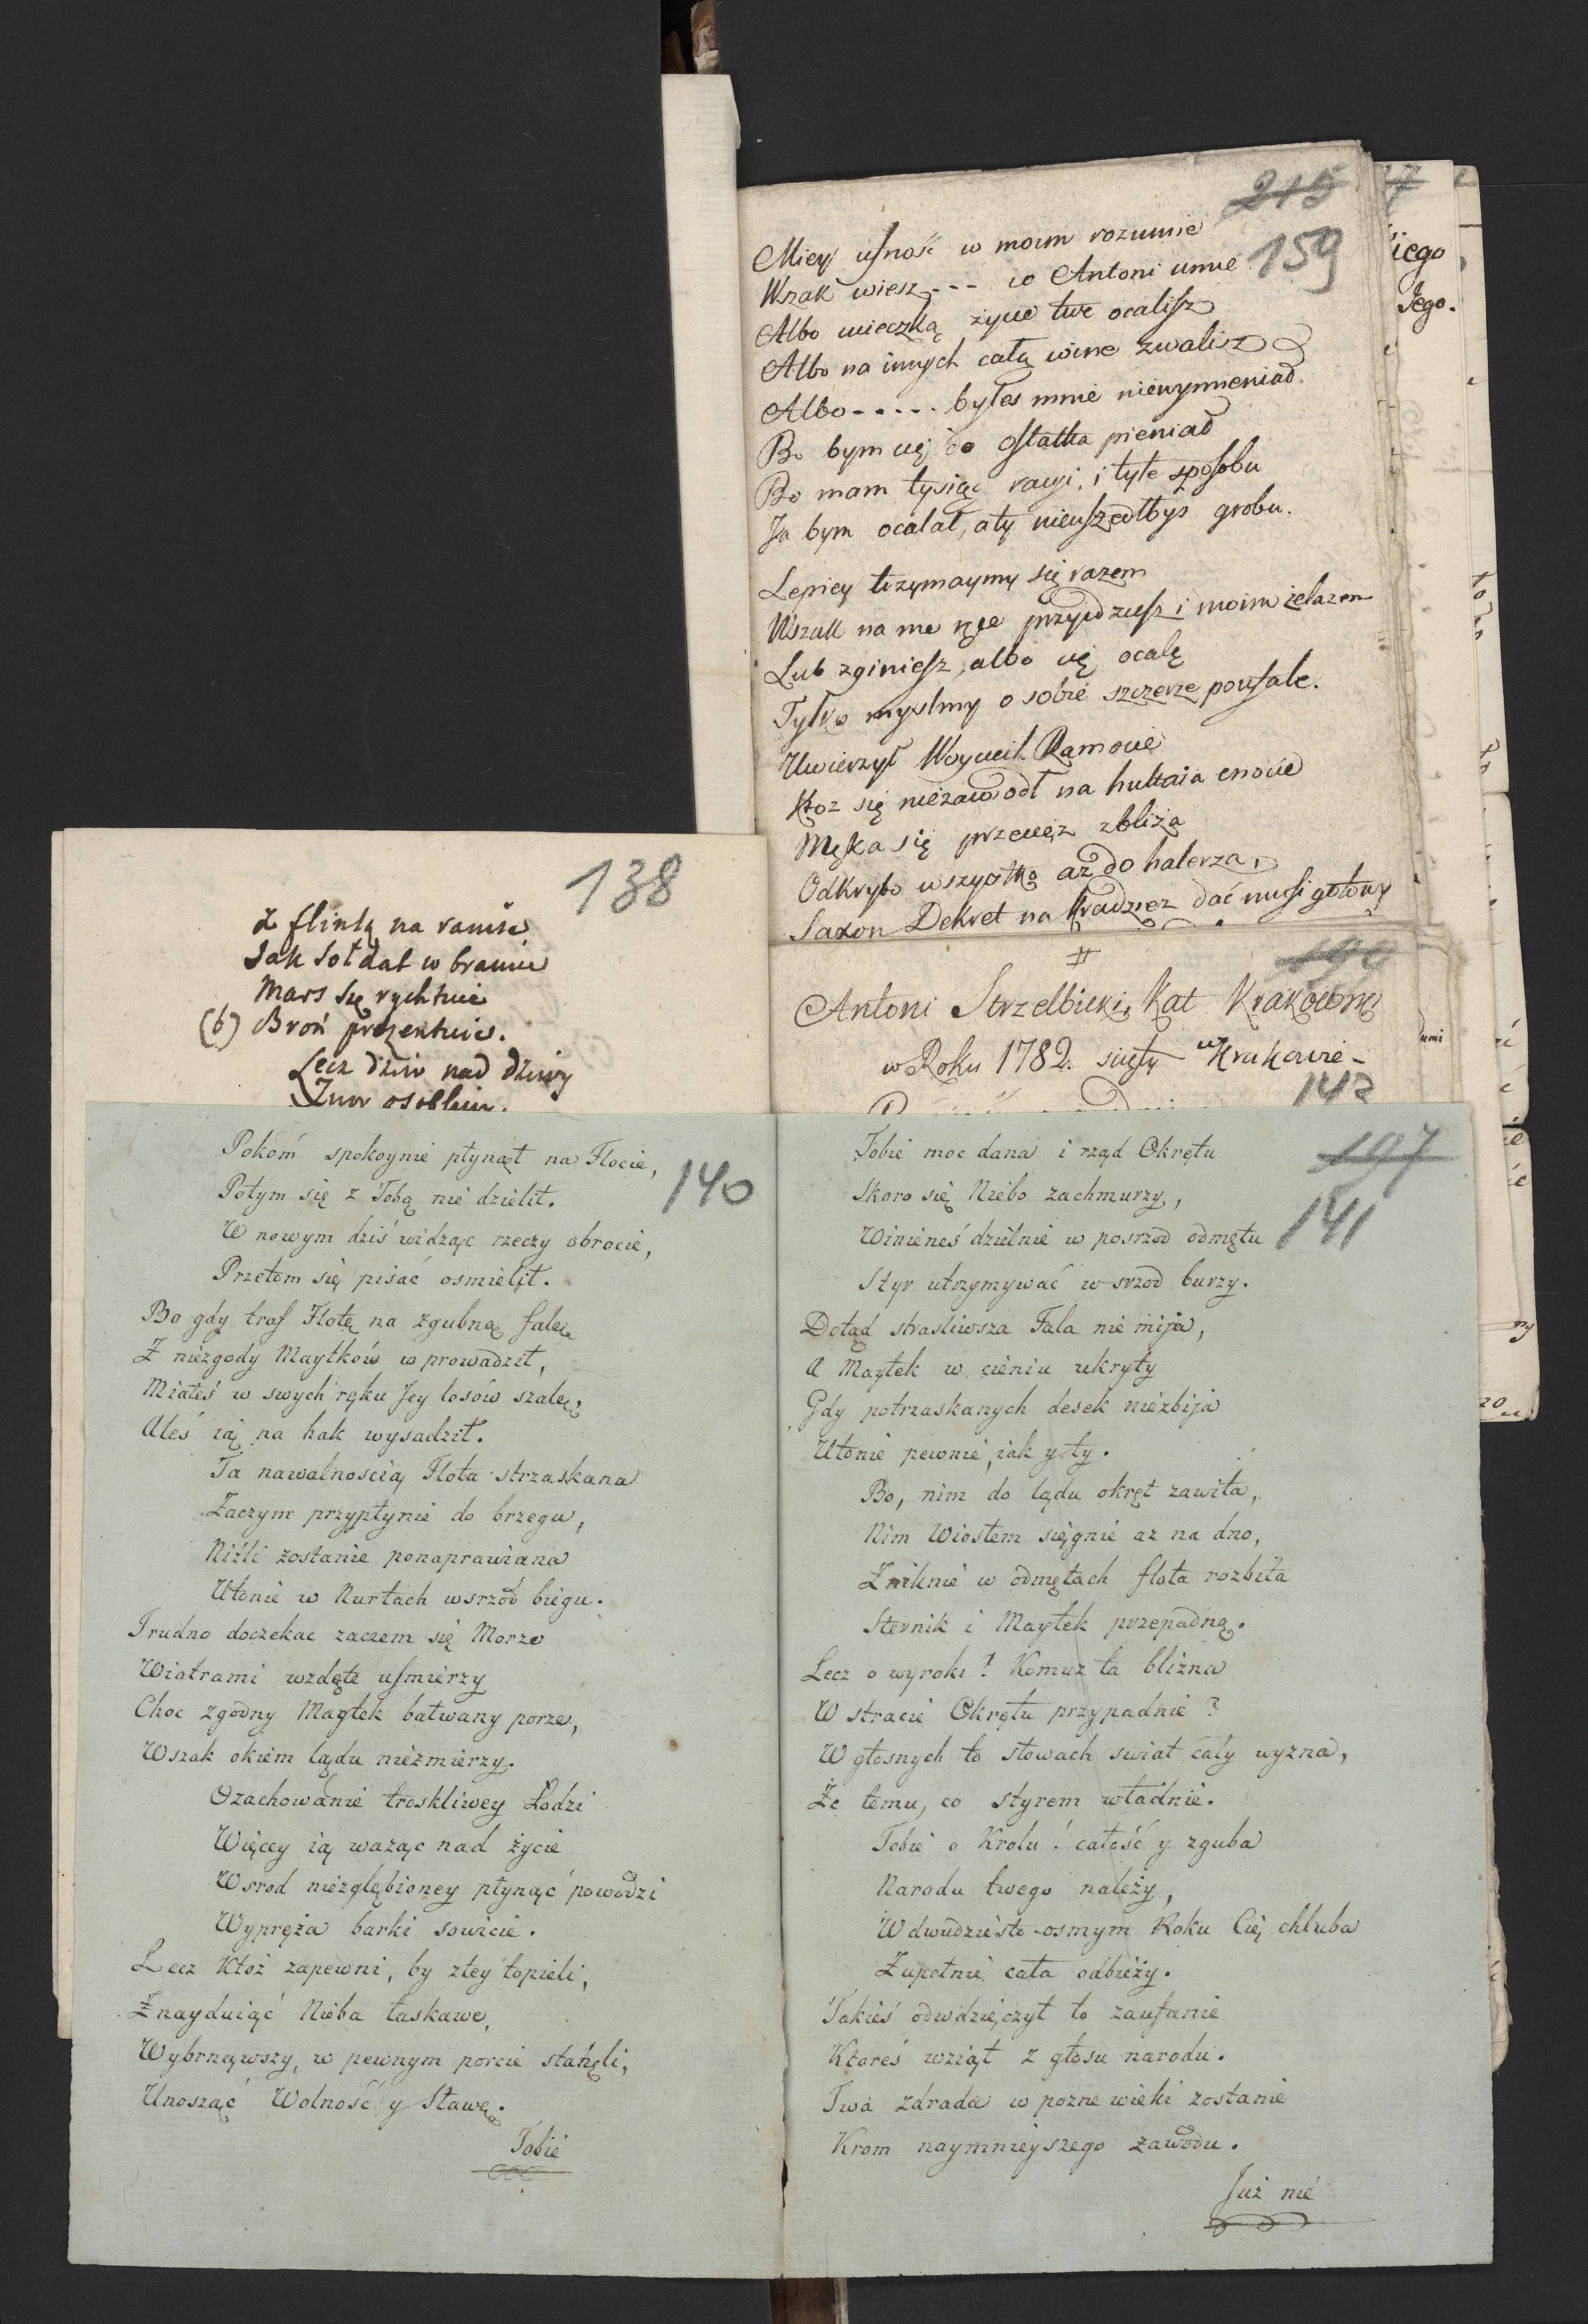 215
159
Miey ufność w moim rozumie
Wszak wiesz --- co Antoni umie
Albo ucieczką życie twe ocalisz
Albo na innych całą wine zwalisz
Albo ----- byłes mnie niewymieniał
Bo bym cię do ostatka pieniał
Bo mam tysiąc racyi, i tyle sposobu
Ja bym ocalał, a ty nieuszedłbys grobu.
Lepiey trzymaymy się razem
Wszak na me ręce przyidziesz i moim żelazem
Lub zginiesz, albo cię ocalę
Tylko myslmy o sobie szczerze poufale.
Uwierzył Woyciech Ramowie
Ktoz się niezawodł na hultaia cnocie
Męka się przecięz zbliża
Odkryto wszystko aż do halerza,
Saxon Dekret na Kradziez dać musi gotowy
138
z flintą na ramie
Jak Sołdat w bramie
Mars się rychtuie
(b) Broń prezentuie.
Lecz dziw nad dziwy
Zuw osobliw.
190
#
Antoni Strzelbicki, Kat Krakowski
w Roku 1782. ścięty w Krakowie -
142
iego
Jego.
140
Pokom spokoynie płynął na Flocie,
Potym się z Tobą nie dzielit.
W nowym dziś widząc rzeczy obrocie,
Przetom się pisać osmielit.
Bo gdy traf Flotę na zgubną falę
Z niezgody Maytków wprowadzit,
Miałeś w swych ręku Jey losów szalę,
Aleś ią na hak wysadzit.
Ta nawalnością Flota strzaskana
Zaczym przypłynie do brzegu,
Niźli zostanie ponaprawiana
Utonie w Nurtach wsrzód biegu.
Trudno doczekac zaczem się Morze
Wiatrami wzdęte usmierzy
Choc zgodny Maytek bałwany porze,
Wszak okiem lądu niezmierzy.
O zachowanie troskliwey Łodzi
Więcey ią ważąc nad życie
Wsrod niezgłębioney płynąć powodzi
Wypręża barki sowicie.
Lecz Ktoż zapewni, by złey topieli,
Znayduiąć Nieba łaskawe,
Wybrnąwszy, w pewnym porcie stanęli,
Unosząć Wolność y Sławę.
Tobie
197
141
Tobie moc dana i rząd Okrętu
Skoro się Niebo zachmurzy,
Winieneś dzielnie w posrzod odmętu
Styr utrzymywać w srzod burzy.
Dotąd strasliwsza Fala nie mija,
A Maytek w cieniu ukryty
Gdy potrzaskanych desek niezbija
Utonie pewnie, iak y ty.
Bo, nim do lądu okręt zawita,
Nim Wiosłem sięgnie az na dno,
Zniknie w odmętach flota rozbita
Sternik i Maytek przepadną.
Lecz o wyroki! Komuz ta blizna
W stracie Okrętu przypadnie?
W głosnych to słowach swiat cały wyzna,
Że temu, co styrem władnie.
Tobie o Krolu! całość y zguba
Narodu twego należy,
W dwudziesto-osmym Roku Cię chluba
Zupełnie cała odbieży.
Takieś odwdzięczył to zaufanie
Ktoreś wziął z głosu narodu.
Twa zdrada w pozne wieki zostanie
Krom naymnieyszego zawodu.
Już nie